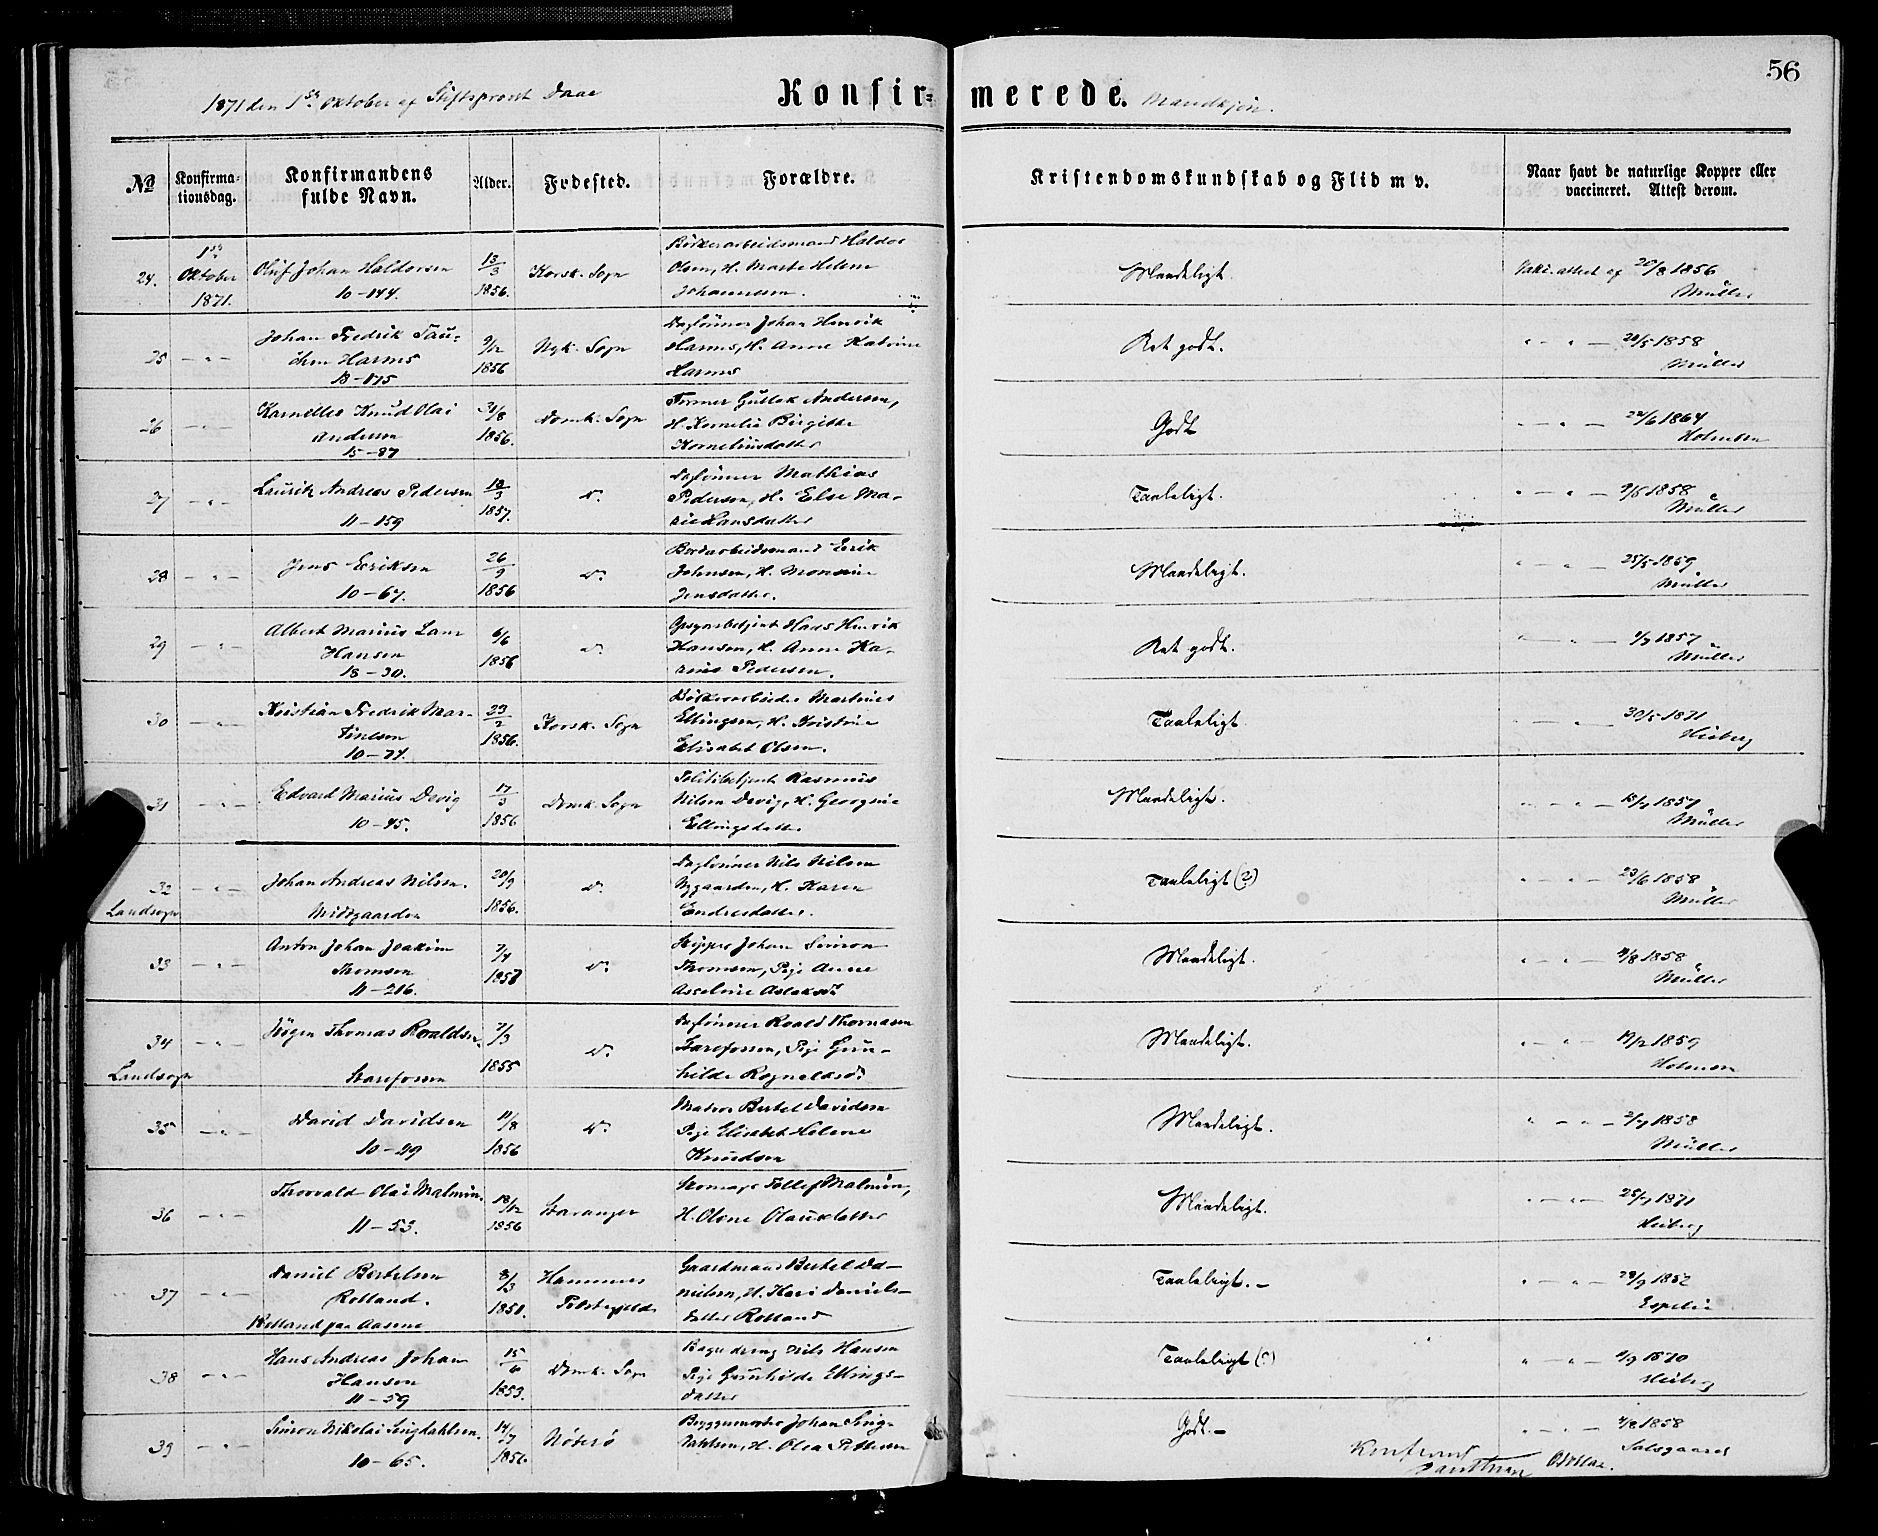 56
1871 den 1ste Oktober af Stiftsprovst Daae
Konfir=
merede.
Mandkjön.
No
Konfirma-
tionsdag.
Konfirmandens
fulde Navn.
Alder.
Fødested.
Forældre.
Kristendomskundskab og Flid m v.
Naar havt de naturlige Kopper eller
vaccineret. Attest derom.
24.
1ste
Oktober
1871.
Oluf Johan Haldorsen
10-144.
13/3
1856.
Korsk. Sogn
Haldor
Olsen, H. Marte Helene
Johannesen.
Maadeligt.
Vakc. attest af 20/8 1856
Müller
25
Johan Fredrik
Harms
18-175
9/12
1856
Nyk. Sogn
Daglönner Johan Henrik
Harms, H. Anne Katrine
Harms
Ret godt.
20/5 1858
Müller
26
Karnelius Knud Olai
Andersen
15-87
31/8
1856.
Domk. Sogn
Former Gullak Andersen,
H. Kornelia Birgitte
Korneliusdatter
Godt
1864
Holmsen
27
Laurits Andreas Pedersen
11-159
18/3
1857.
Do
Daglönner Mathias
Pedersen, H. Else Ma-
rie Hansdatter
Taaleligt.
9/5 1858
Müller
28
Jens Eriksen
10-67.
26/9
1856
Do
Erik
Johnsen, H. Monsine
Jensdatter.
Maadeligt.
25/5 1859
Müller
29
Albert Marius Lau
Hansen
18-30.
6/6
1856
Do
Hans Henrik
Hansen, H. Anne Ka-
rine Pedersen.
Ret godt.
1857
Müller
30
Kristian Fredrik Mar-
tinsen
10-71.
23/2
1856.
Korsk. Sogn
Martinus
Ellingsen, H. Kristine
Elisabet Olsen.
Taaleligt
30/5 1871
Heiberg
31
Edvard Marius Devig
10-45.
17/3
1856
Domk. Sogn
Politibetjent Rasmus
Nilsen Devig, H. Georgine
Ellingsdatter
Maadeligt.
1857
Müller
32
Landsogn
Johan Andreas Nilsen.
Midtgaarden
20/9
1856.
Do
Daglönner Nils Nilsen
Nygaarden, H. Karen
Endresdatter.
Taaleligt (?)
23/6 1858
Müller
33
Anton Johan Joakim
Thomsen
11-216.
Do
Skipper Johan Simon
Thomsen, Pige Anne
Asseline Aslaksdt
Maadeligt.
1858
Müller
34
Landsogn
Jörgen Thomas Roaldsen.
Starefossen
7/3
1855
Do
Daglönner Roald Thomasen
Starefossen, Pige Gun-
hilde Rognaldsdt
Maadeligt.
1859
Holmsen
35
David Davidsen
10-49
11/8
1856
Do
Matros Bertel Davidsen
Pige Elisabet Helene
Knudsen
Maadeligt.
1858
Müller
36
Thorvald Olai Malmin.
11-53.
18/12
1856
Stavanger
Tollef Malmin,
H. Olene Olausdatter
Maadeligt.
1871
Heiberg
37
Daniel Bertelsen
Rolland.
Rolland paa Aasene
8/3
Hammers
Præstegjeld
Gaardmand Bertel Da-
nielsen, H. Kari Daniels-
datter Rolland
Taaleligt.-
1852
Espelie
38
Hans Andreas Johan
Hansen
11-59
15/6
1853.
Domk. Sogn
Bagerdreng Nils Hansen
Pige Gunhilde Ellings-
datter
Taaleligt (?)
1870
Heiberg
39
Simon Nikolai Singdahlsen.
10-65.
14/7
1856.
Nöterö
Johan Sing-
dahlsen, H. Olea Pettersen
Godt.-
1858